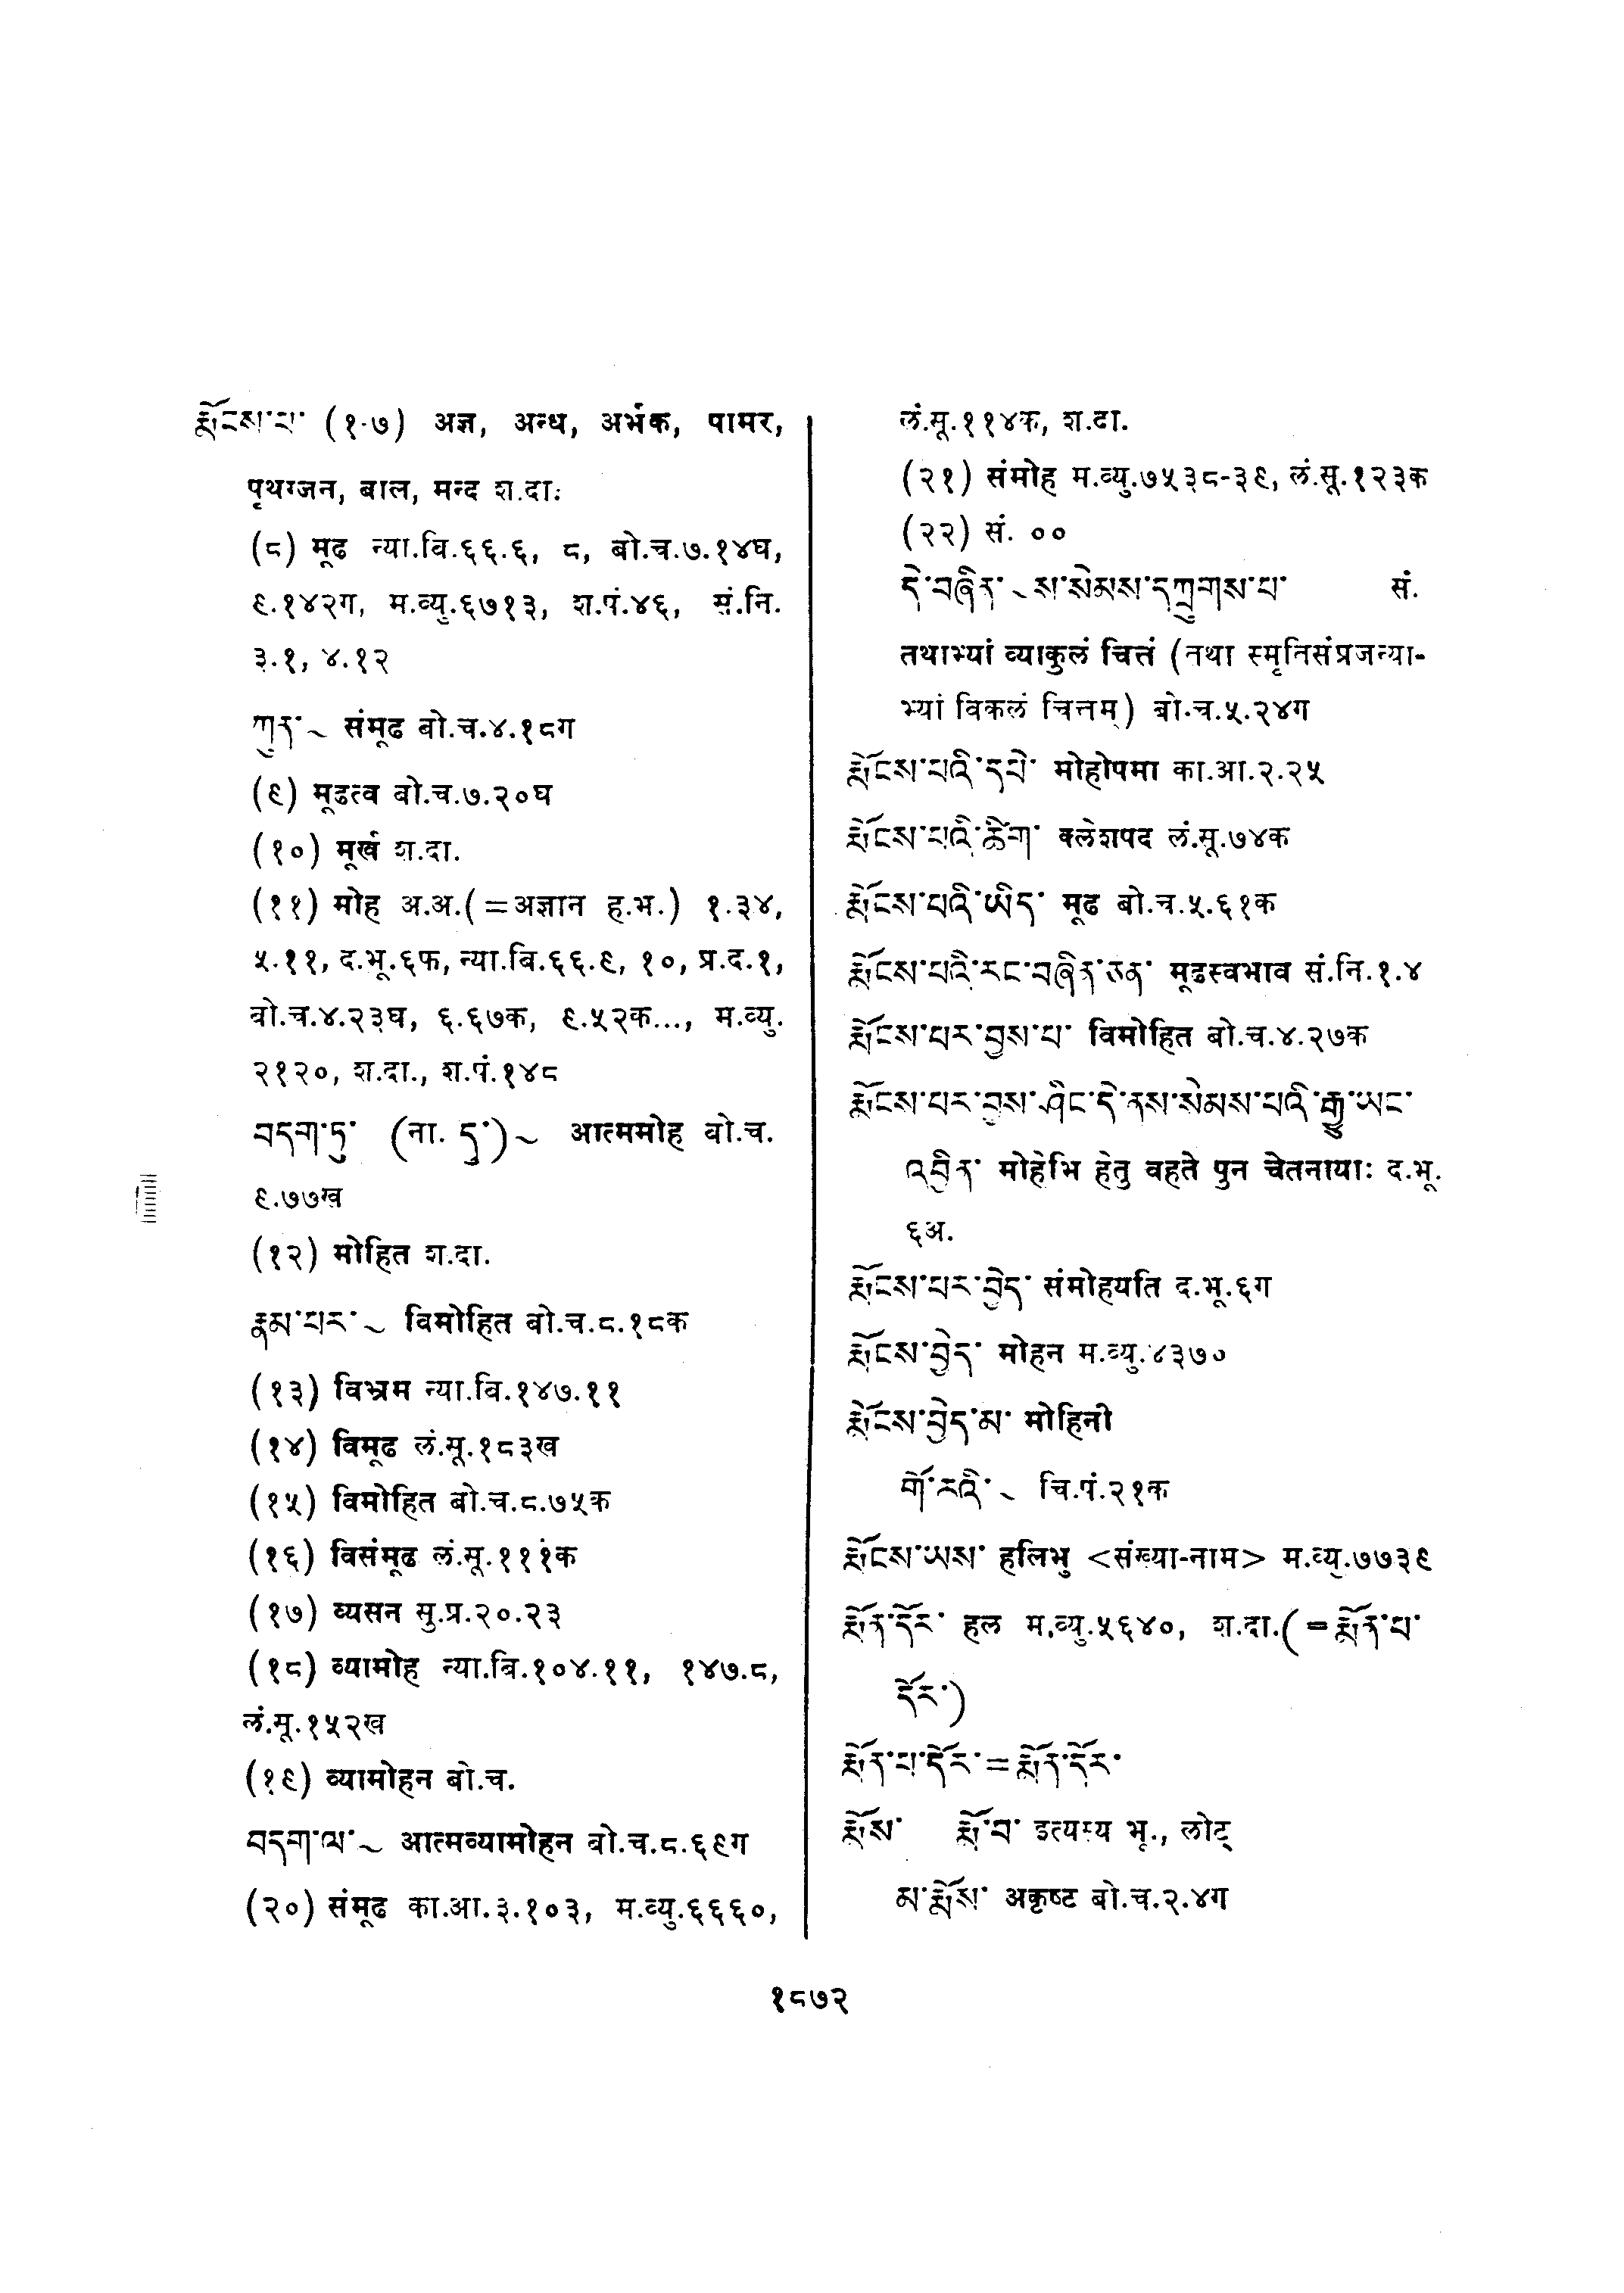 རྨོངས་པ་ (१-७) अज्ञ, अन्ध, अर्भक, पामर,
पृथग्जन, बाल, मन्द श.दा.
(८) मूढ न्या.बि.६६.६, ८, बो.च.७.१४घ,
९.१४२ग, म.व्यु.६७१३, श.पं.४६, सं.नि.
३.१, ४.१२
ཀུན་~ संमूढ बो.च.४.१८ग
(९) मूढत्व बो.च.७.२०घ
(१०) मूर्ख श.दा.
(११) मोह अ.अ.(=अज्ञान ह.भ.) १.३४,
५.११, द.भू.६फ, न्या.बि.६६.९, १०, प्र.द.१,
बो.च.४.२३घ, ६.६७क, ९.५२क..., म.व्यु.
२१२०, श.दा., श.पं.१४८
བདག་ཏུ་ (ना. དུ་)~ आत्ममोह बो.च.
९.७७ख
(१२) मोहित श.दा.
རྣམ་པར་~ विमोहित बो.च.८.१८क
(१३) विभ्रम न्या.बि.१४७.११
(१४) विमूढ लं.सू.१८३ख
(१५) विमोहित बो.च.८.७५क
(१६) विसंमूढ लं.सू.१११क
(१७) व्यसन सु.प्र.२०.२३
(१८) व्यामोह न्या.बि.१०४.११, १४७.८,
लं.सू.१५२ख
(१९) व्यामोहन बो.च.
བདག་ལ་~ आत्मव्यामोहन बो.च.८.६९ग
(२०) संमूढ का.आ.३.१०३, म.व्यु.६६६०,
लं.सू.११४क, श.दा.
(२१) संमोह म.व्यु.७५३८-३९, लं.सू.१२३क
(२२) सं. ००
དེ་བཞིན་~ས་སེམས་དཀྲུགས་པ་ सं.
तथाभ्यां व्याकुलं चित्तं (तथा स्मृतिसंप्रजन्या-
भ्यां विकलं चित्तम्) बो.च.५.२४ग
རྨོངས་པའི་དཔེ་ मोहोपमा का.आ.२.२५
རྨོངས་པའི་ཚིག་ क्लेशपद लं.सू.७४क
རྨོངས་པའི་ཡིད་ मूढ बो.च.५.६१क
རྨོངས་པའི་རང་བཞིན་ཅན་ मूढस्वभाव सं.नि.१.४
རྨོངས་པར་བྱས་པ་ विमोहित बो.च.४.२७क
རྨོངས་པར་བྱས་ཤིང་དེ་ནས་སེམས་པའི་རྒྱུ་ཡང་
འབྱིན་ मोहेभि हेतु वहते पुन चेतनायाः द.भू.
६अ.
རྨོངས་པར་བྱེད་ संमोहयति द.भू.६ग
རྨོངས་བྱེད་ मोहन म.व्यु.४३७०
རྨོངས་བྱེད་མ་ मोहिनी
གོ་རའི་~ चि.पं.२१क
རྨོངས་ཡས་ हलिभु <संख्या-नाम> म.व्यु.७७३९
རྨོན་དོར་ हल म.व्यु.५६४०, श.दा.(=རྨོན་པ་
དོར་)
རྨོན་པ་དོར་=རྨོན་དོར་
རྨོས་ རྨོ་བ་ इत्यस्य भू., लोट्
མ་རྨོས་ अकृष्ट बो.च.२.४ग
१८७२